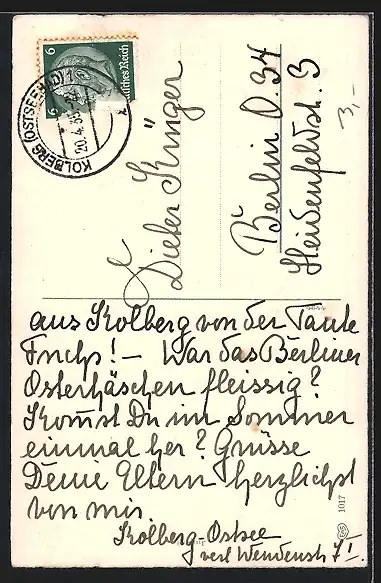 6
Deutsches Reich
KOLBERG (OSTSEEBAD) 1
20.4.35
Dieter Krüger
Berlin O.34
Heidenfeldstr. 3
3,-
aus Kolberg von der Tante
Fuchs! — War das Berliner
Osterhäschen fleissig?
Kom̄st Du im Sommer
einmal her? Grüsse
Deine Eltern herzlichst
von mir
Kolberg-Ostsee
verl Wendenstr 7 I
1017